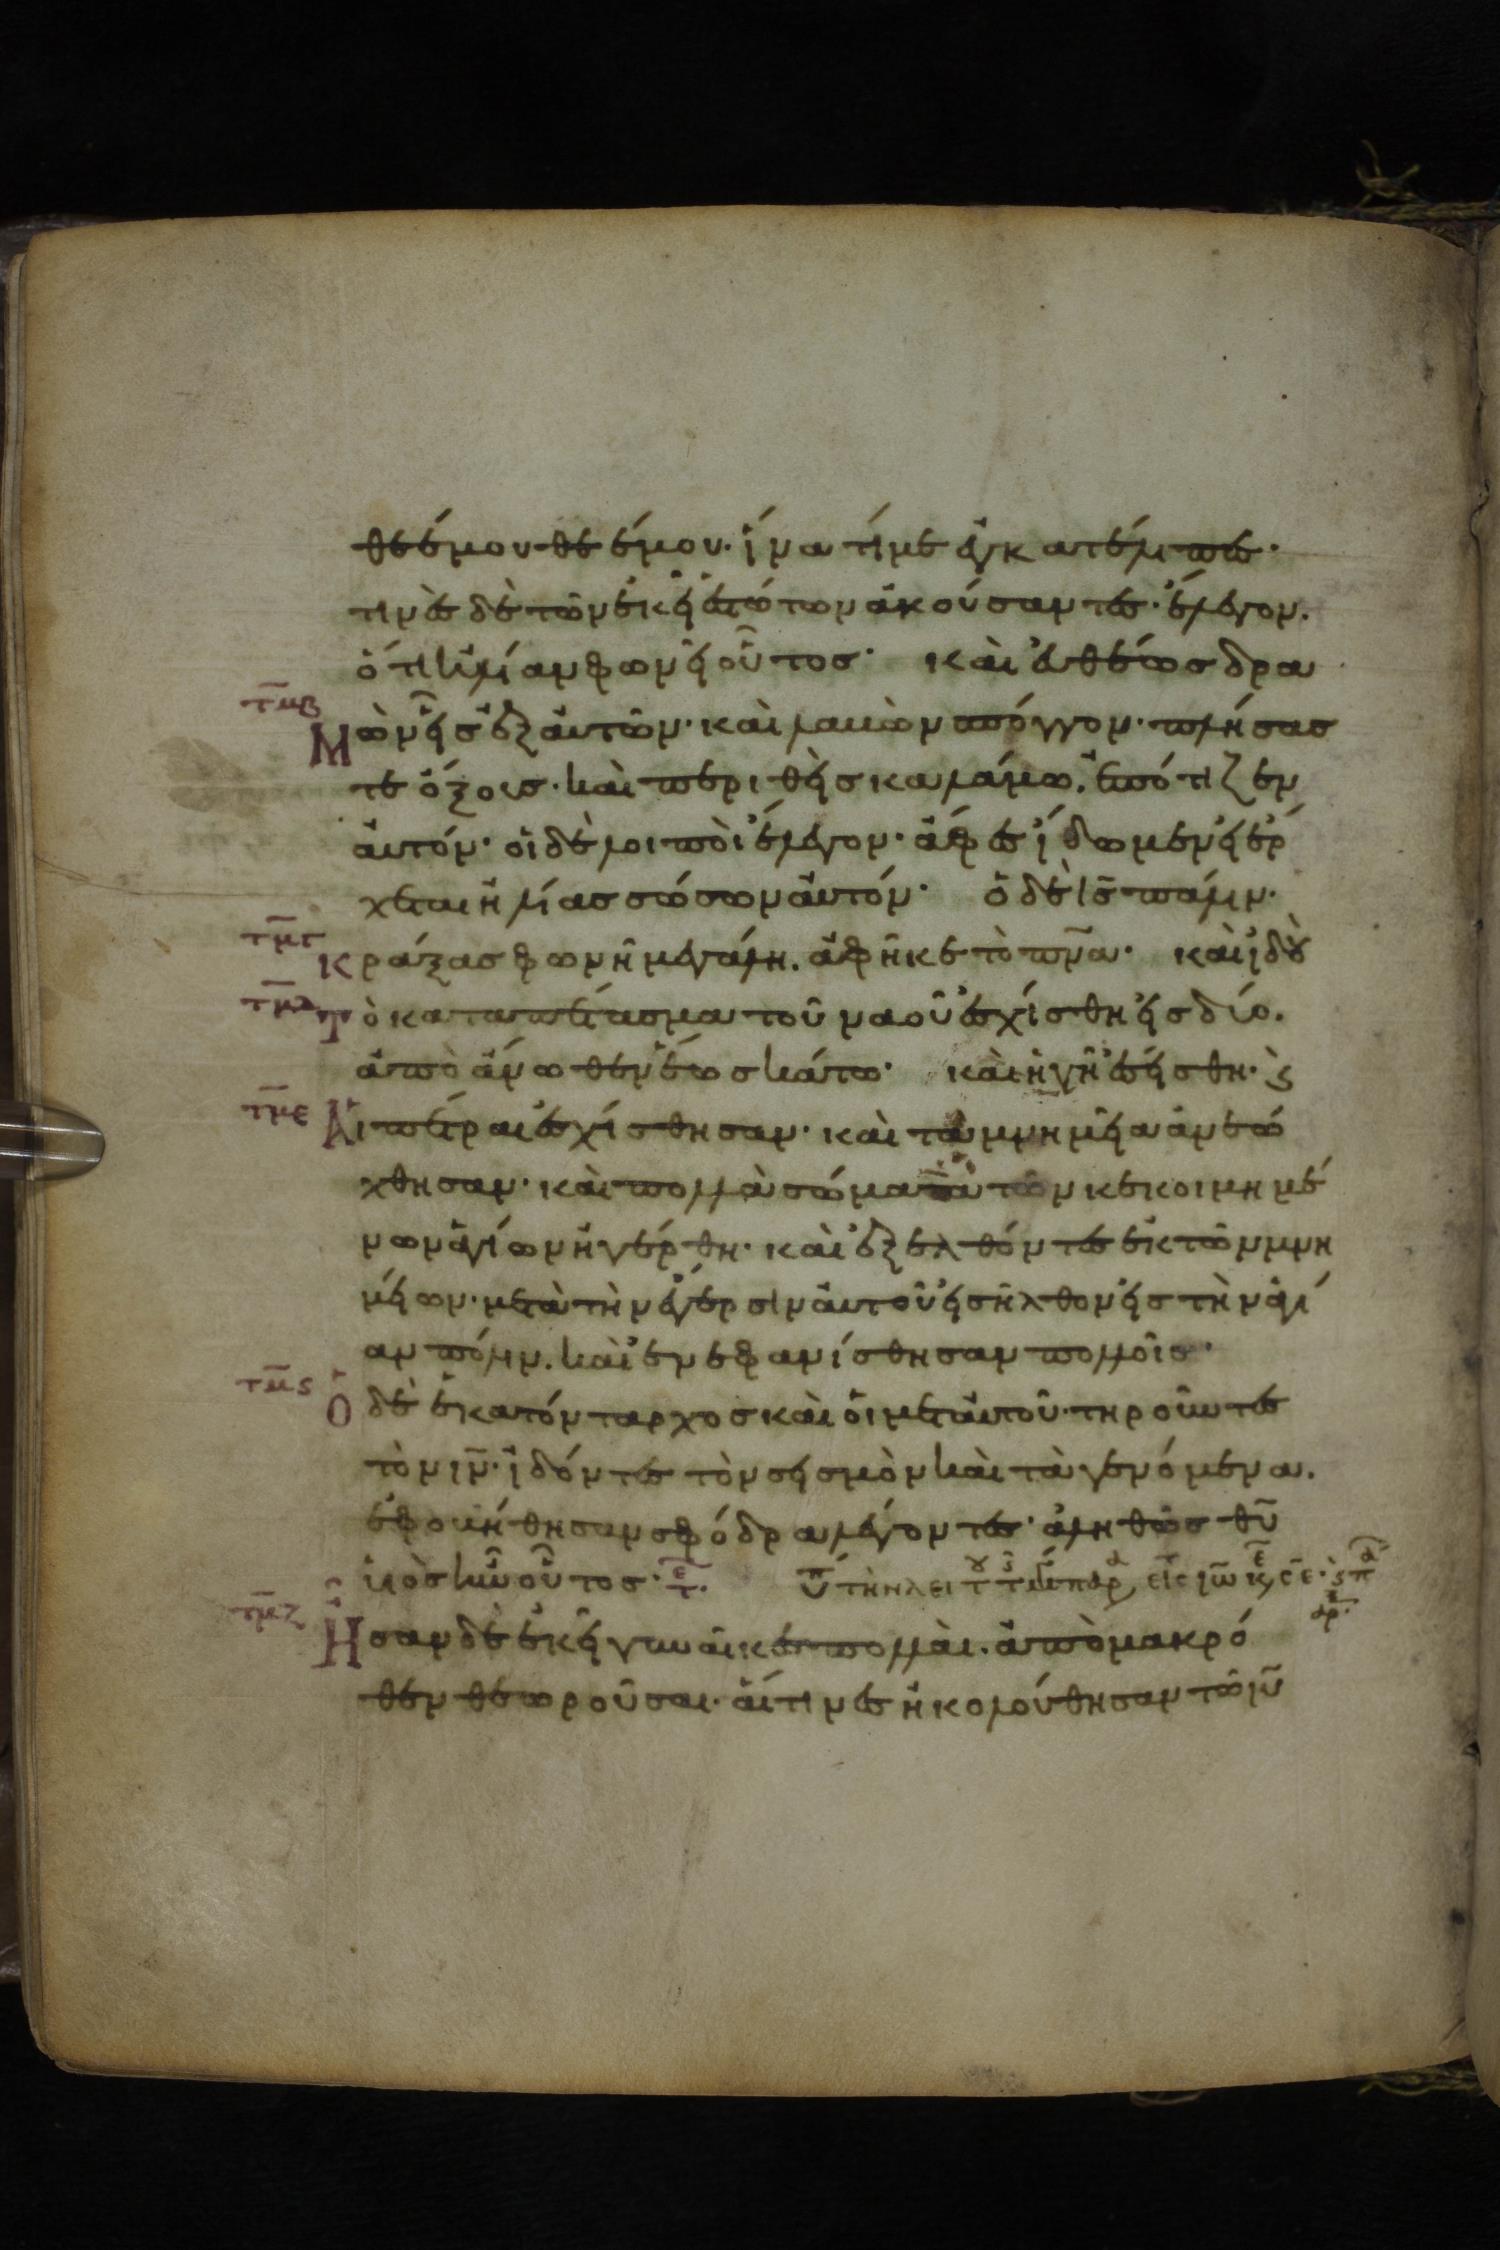 θεέ μου θεέ μου· ἵνα τί με ἐγκατέλιπες·
τινὲς δὲ τῶν ἐκεῖ ἑστώτων ἀκούσαντες· ἔλεγον.
ὅτι ἠλίαν φωνεῖ οὗτος· καὶ εὐθέως δρα
τμβ
μὼν εἷς ἐξ αὐτῶν· καὶ λαβὼν σπόγγον· πλήσας
τε ὄξους· καὶ περιθεὶς καλάμω. ἐπότιζεν
αὐτόν· οἱ δὲ λοιποὶ ἔλεγον· ἄφες ἴδωμεν εἰ ἔρ
χεται ἠλίας σώσων αὐτόν· ὁ δὲ ις̅ πάλιν·
τμγ
κράξας φωνῆ μεγάλη. ἀφῆκε τὸ πν̅α· καὶ ἰδοὺ
τμδ
Τὸ καταπέτασμα τοῦ ναοῦ ἐσχίσθη εἰς δύο.
ἀπὸ ἄνωθεν ἕως κάτω· καὶ ἡ γῆ ἐσείσθη· ϗ
τμε
Αἱ πέτραι ἐσχίσθησαν· καὶ τὰ μνημεῖα ἀνεώ
χθησαν· καὶ πολλὰ σώματα τῶν κεκοιμημέ
νων ἁγίων ἠγέρθη· καὶ ἐξελθόντες ἐκ τῶν μνη
μείων· μετὰ τὴν ἔγερσιν αὐτοῦ εἰσῆλθον εἰς τὴν ἁγί
αν πόλιν. καὶ ἐνεφανίσθησαν πολλοῖς·
τμς
Ὁ δὲ ἑκατόνταρχος καὶ οἱ μετ αὐτοῦ· τηροῦντες
τὸν ιν̅· ἰδόντες τὸν σεισμὸν καὶ τὰ γενόμενα.
ἐφοβήθησαν σφόδρα λέγοντες· ἀληθῶς θυ̅
υἱὸς ἦν οὗτος·
τμζ
Ἦσαν δὲ ἐκεῖ γυναῖκες πολλαὶ. ἀπὸ μακρό
θεν θεωροῦσαι· αἵτινες ἠκολούθησαν τῶ ιυ̅